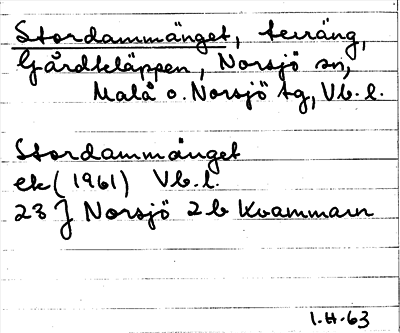 Stordammänget, terräng,
Gårdkläppen, Norsjö sn,
Malå o. Norsjö tg, Vb. l.
Stordammänget
ek (1961) Vb. l.
23 J Norsjö 2 b Kvammarn
1.H.63